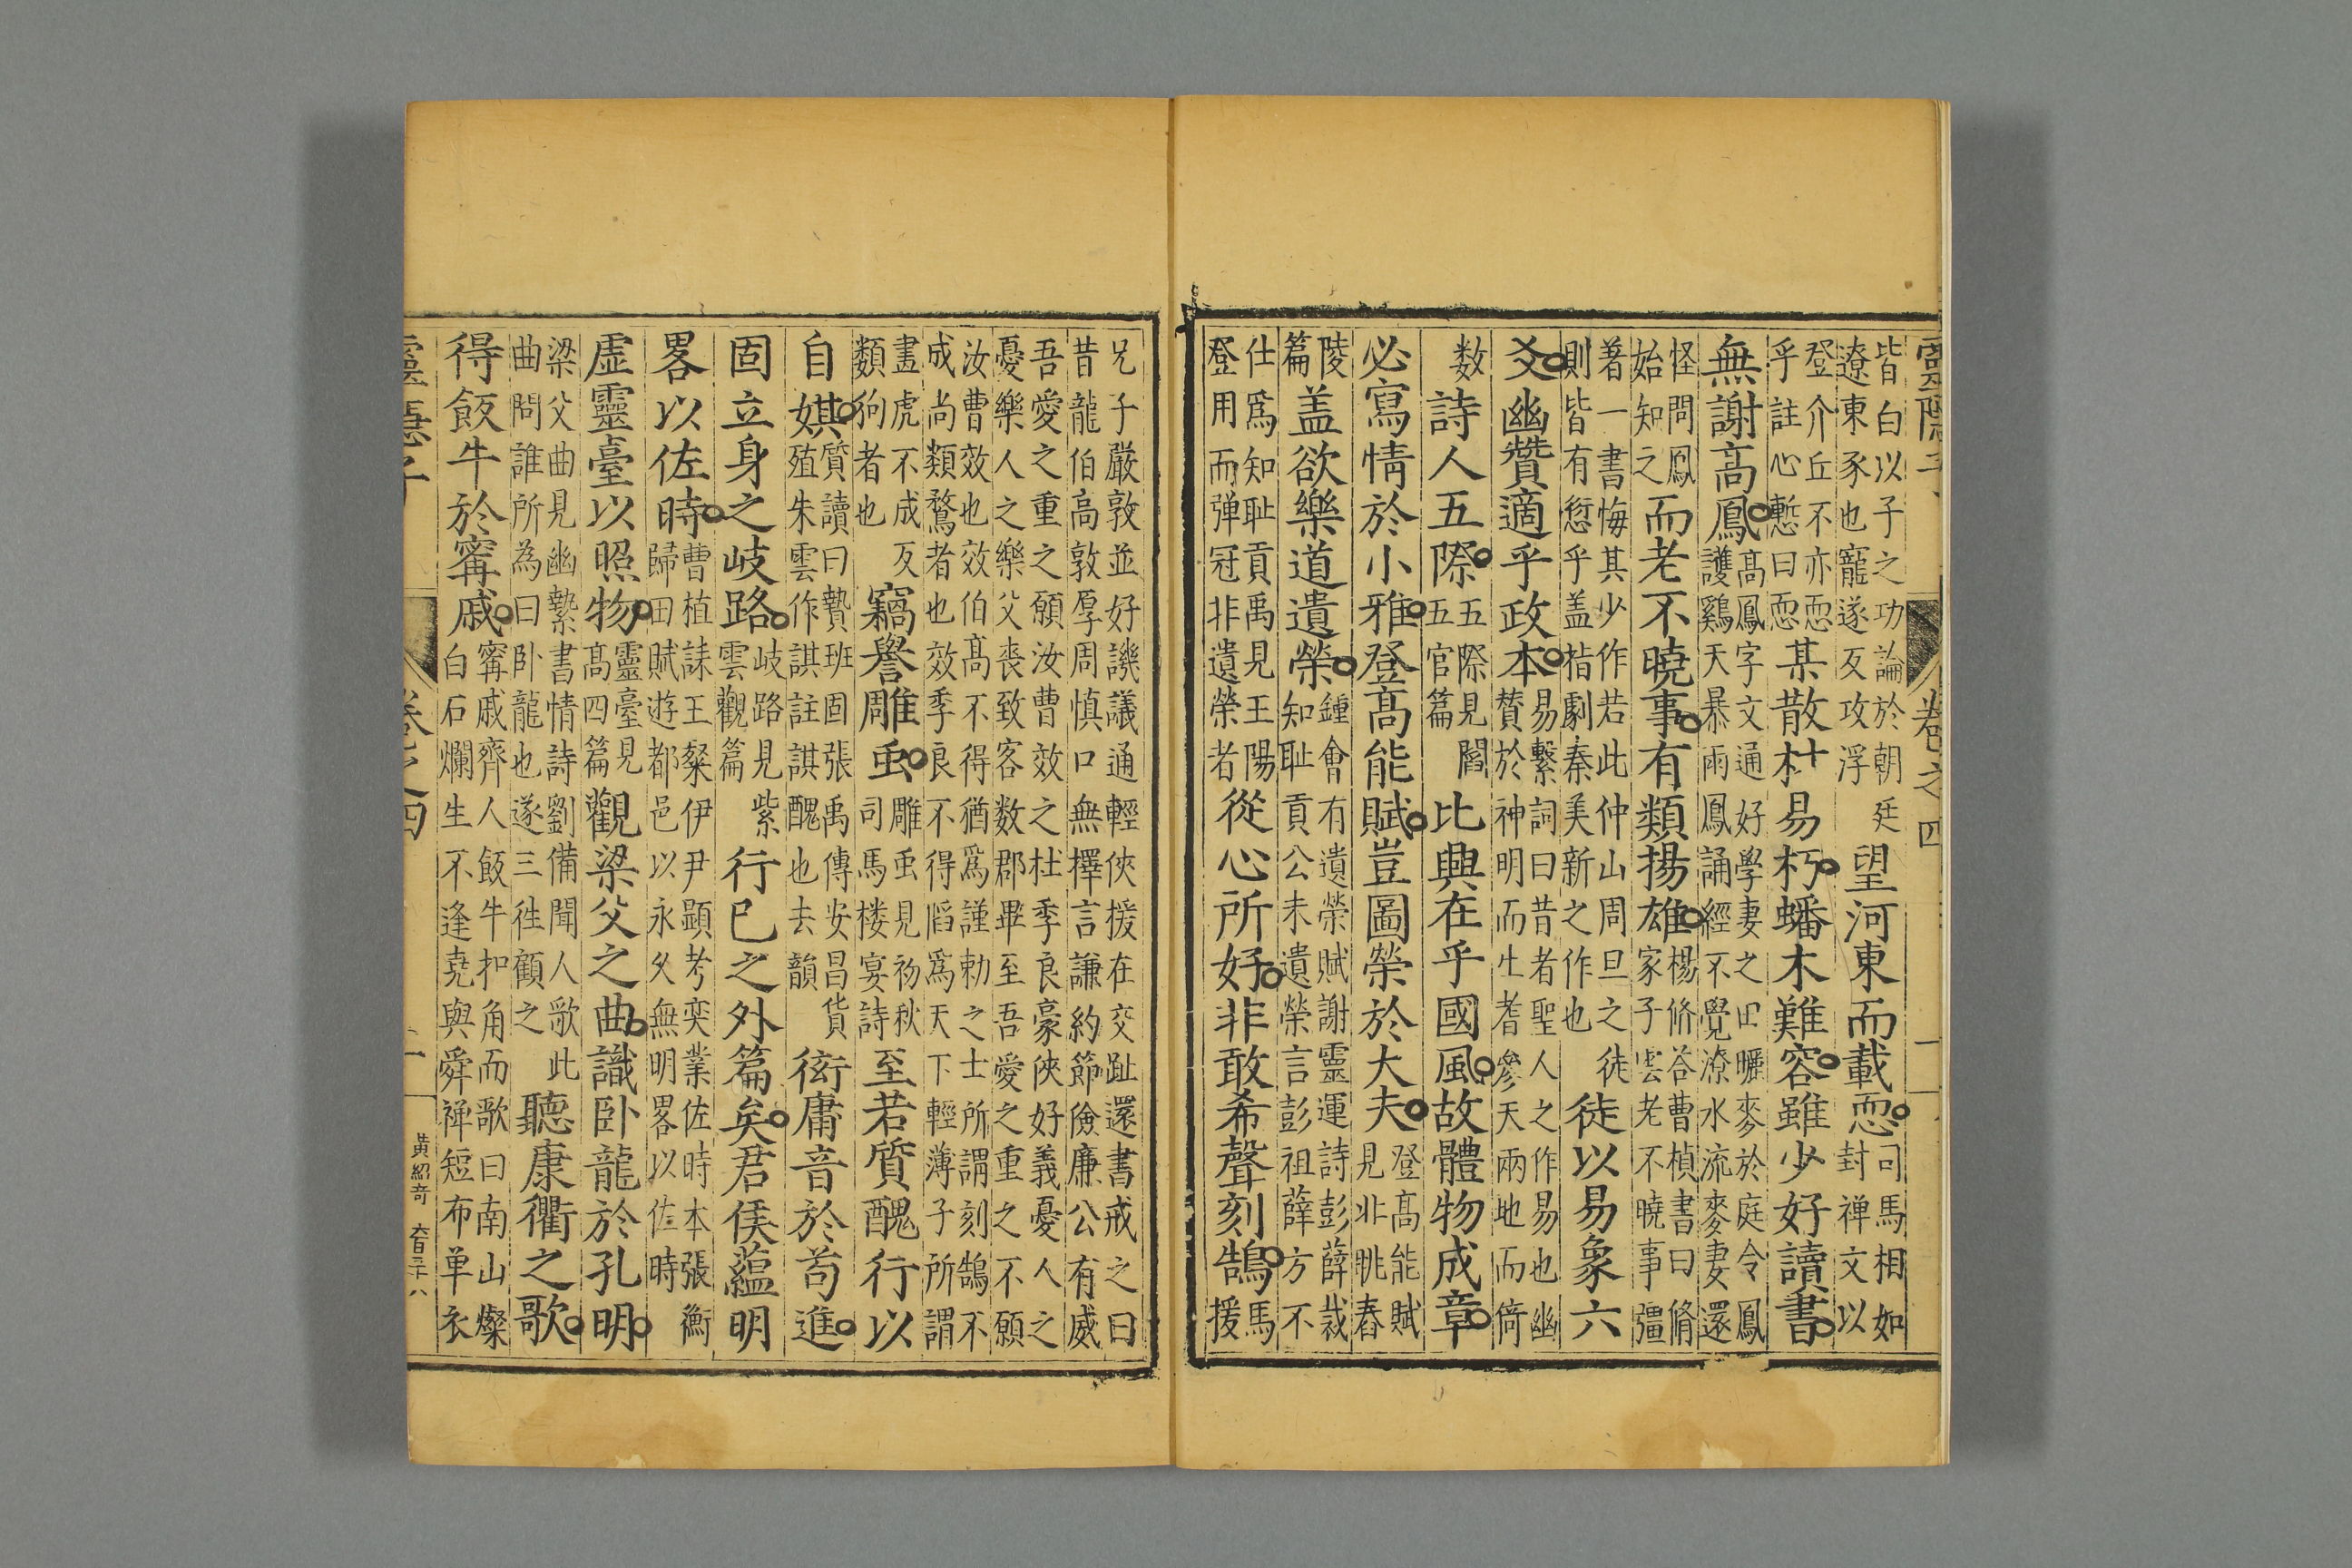 靈隱子 卷之四 一
皆白以子之功論於朝廷
遼東豕也寵遂反攻浮
望河東而載恧
司馬相如
封禅文以
登介丘不亦恧
乎註心慙曰恧
某散材易朽蟠木難容雖少好讀書
無謝髙鳳
髙鳳字文通好學妻之田曬麥於庭令鳳
護鷄天暴雨鳳誦經不覺潦水流麥妻還
怪問鳳
始知之
而老不曉事有類揚雄
楊脩荅曹楨書曰脩
家子雲老不曉事彊
著一書悔其少作若此仲山周旦之徒
則皆有愆乎盖指劇秦美新之作也
徒以易象六
爻幽贊適乎政本
易繫詞曰昔者聖人之作易也幽
賛於神明而生耆參天兩地而倚
数
詩人五際
五際見閻
五官篇
比興在乎國風故體物成章
必寫情於小雅登髙能賦豈圖榮於大夫
登髙能賦
見非眺舂
陵
篇
盖欲樂道遺榮
鍾會有遺榮賦謝靈運詩彭薛裁
知耻貢公未遺榮言彭祖薛方不
仕爲知耻貢禹見王陽
登用而弹冠非遺榮者
從心所好非敢希聲刻鵠
馬
援
兄子嚴敦並好譏議通輕俠援在交趾還書戒之曰
昔龍伯高敦厚周慎口無擇言謙約節儉廉公有威
吾愛之重之願汝曹效之杜季良豪俠好義憂人之
憂樂人之樂父丧致客数郡畢至吾愛之重之不願
汝曹效也效伯髙不得猶爲謹勅之士所謂刻鵠不
成尚類鶩者也效季良不得䧟爲天下輕薄子所謂
畫虎不成反
類狗者也
竊譽雕䖝
雕䖝見初秋
司馬楼宴詩
至若質醜行以
自娸
質讀曰贄班固張禹傳安昌貨
殖朱雲作諆註諆醜也去韻
衒庸音於苟進
固立身之岐路
岐路見紫
雲觀篇
行已之外篇矣君侯蘊明
畧以佐時
曹植誄王粲伊尹顯考奕業佐時本張衡
歸田賦遊都邑以永久無明畧以佐時
虚靈臺以照物
靈臺見
髙四篇
觀梁父之曲識卧龍於孔明
梁父曲見幽縶書情詩劉備聞人歌此
曲問誰所為曰卧龍也遂三徃顧之
聽康衢之歌
得飯牛於寗戚
寗戚齊人飯牛扣角而歌曰南山燦
白石爛生不逢堯與舜禅短布单衣
靈隱子 卷之四 二 黄紹竒